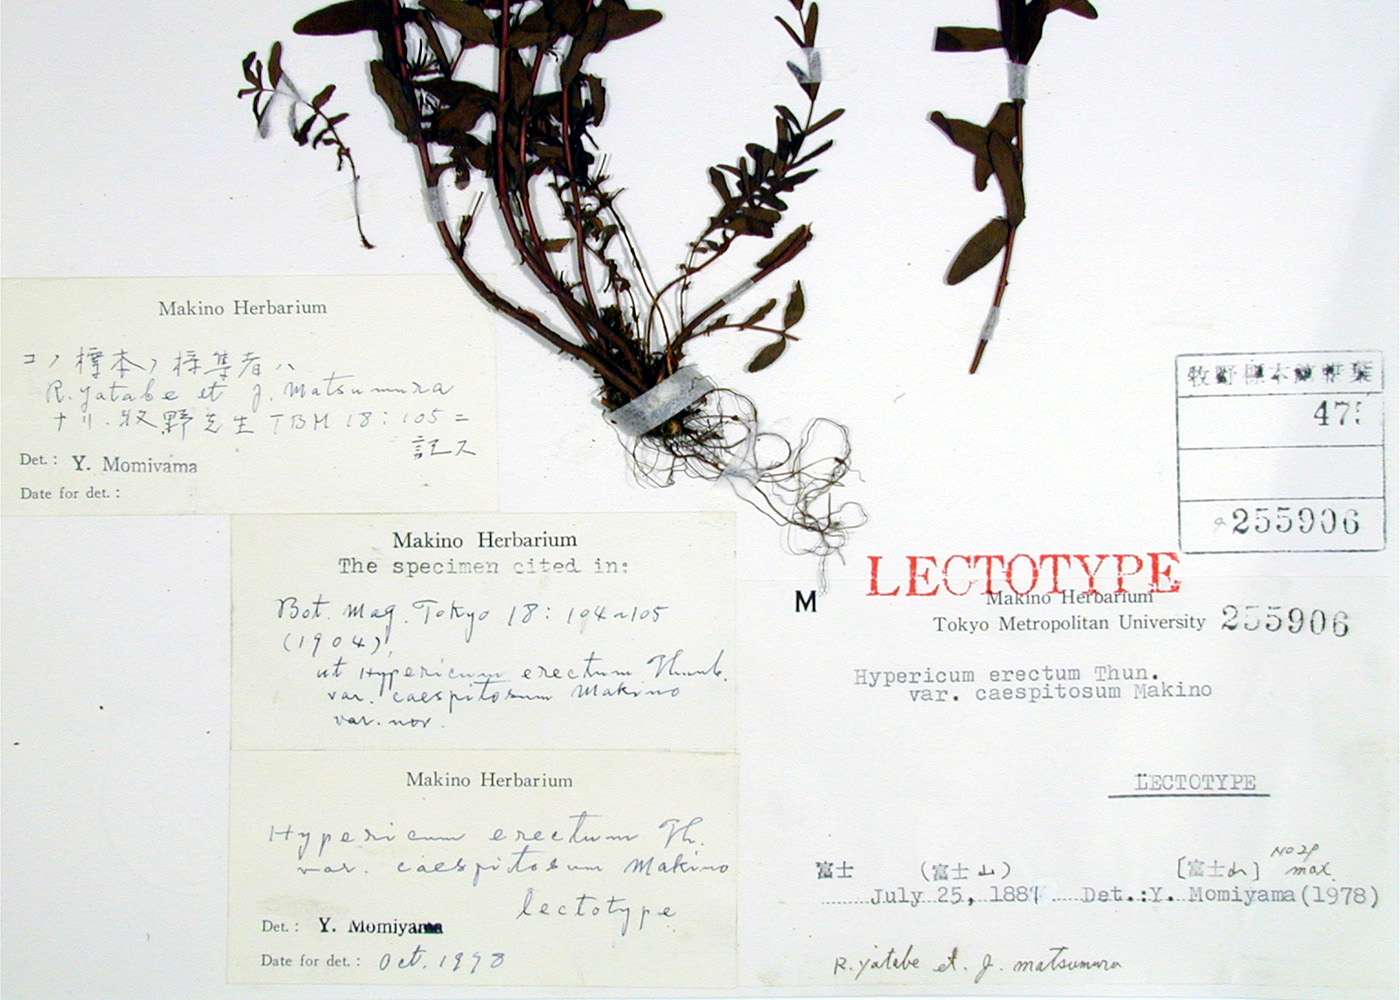 Makino Herbarium
コノ標本ノ採集者ハ
R. Yatabe et J. Matsumura
ナリ. 牧野先生 TBM 18: 105 =
記ス
Det.: Y. Momiyama
Date for det.:
Makino Herbarium
The specimen cited in:
Bot. Mag. Tokyo 18: 104~105
(1904),
ut Hypericum erectum Thunb.
var. caespitosum Makino
var. nov.
Makino Herbarium
Hypericum erectum Th.
var. caespitosum Makino
lectotype
Det.: Y. Momiyama
Date for det.: Oct. 1978
牧野標本館腊葉
475
255906
LECTOTYPE
M
Makino Herbarium
Tokyo Metropolitan University 255906
Hypericum erectum Thun.
var. caespitosum Makino
LECTOTYPE
富士 (富士山) [富士山] max.
July 25, 1881 Det.:Y. Momiyama(1978)
R. Yatabe et. J. matsumura